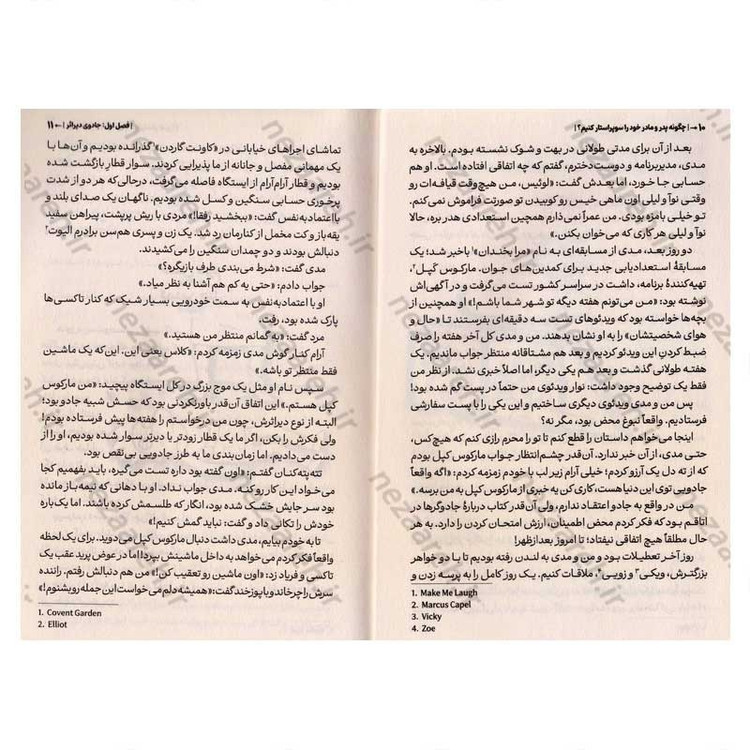 ۱۰ → | چگونه پدر و مادر خود را سوپراستار کنیم؟ |
بعد از آن برای مدتی طولانی در بهت و شوک نشسته بودم. بالاخره به
مدی، مدیربرنامه و دوست‌دخترم، گفتم که چه اتفاقی افتاده است. او هم
حسابی جا خورد، اما بعدش گفت: «لوئیس، من هیچ‌وقت قیافه‌ات رو
وقتی نوآ و لیلی اون ماهی خیس رو کوبیدن تو صورتت فراموش نمی‌کنم.
تو خیلی بامزه بودی. من عمراً نمی‌ذارم همچین استعدادی هدر بره، حالا
نوآ و لیلی هر کاری که می‌خوان بکنن.»
دو روز بعد، مدی از مسابقه‌ای به نام «مرا بخندان»۱ باخبر شد؛ یک
مسابقهٔ استعدادیابی جدید برای کمدین‌های جوان. مارکوس کَپل۲،
تهیه‌کنندهٔ برنامه، داشت در سراسر کشور تست می‌گرفت و در آگهی‌اش
نوشته بود: «من می‌تونم هفته دیگه تو شهر شما باشم!» او همچنین از
بچه‌ها خواسته بود که ویدئوهای تست سه دقیقه‌ای بفرستند تا «حال و
هوای شخصیتشان» را به او نشان بدهند. من و مدی کل آخر هفته را صرف
ضبط کردن این ویدئو کردیم و بعد هم مشتاقانه منتظر جواب ماندیم. یک
هفته طولانی گذشت و بعد هم یکی دیگر، اما اصلاً خبری نشد. از نظر من
فقط یک توضیح وجود داشت: نوار ویدئوی من حتماً در پست گم شده بود!
پس من و مدی ویدئوی دیگری ساختیم و این یکی را با پست سفارشی
فرستادیم. واقعاً نبوغ محض بود، مگر نه؟
اینجا می‌خواهم داستان را قطع کنم تا تو را محرم رازی کنم که هیچ‌کس،
حتی مدی، از آن خبر ندارد. آن‌قدر چشم‌انتظار جواب مارکوس کپل بودم
که از ته دل یک آرزو کردم؛ خیلی آرام زیر لب با خودم زمزمه کردم: «اگه واقعاً
جادویی توی این دنیا هست، کاری کن یه خبری از مارکوس کپل به من برسه.»
من در واقع به جادو اعتقاد ندارم، ولی آن‌قدر کتاب دربارهٔ جادوگرها در
اتاقم بود که فکر کردم محض اطمینان، ارزش امتحان کردن را دارد. به هر
حال مطلقاً هیچ اتفاقی نیفتاد؛ تا امروز بعدازظهر!
روز آخر تعطیلات بود و من و مدی به لندن رفته بودیم تا با دو خواهر
بزرگترش، ویکی۳ و زویی۴، ملاقات کنیم. یک روز کامل را به پرسه زدن و
1. Make Me Laugh
2. Marcus Capel
3. Vicky
4. Zoe
| فصل اول: جادوی دیرآثر | ← ۱۱
تماشای اجراهای خیابانی در «کاونت گاردن»۱ گذرانده بودیم و آن‌ها با
یک مهمانی مفصل و جانانه از ما پذیرایی کردند. سوار قطار بازگشت شده
بودیم و قطار آرام‌آرام از ایستگاه فاصله می‌گرفت، درحالی‌که هر دو از شدت
پرخوری حسابی سنگین و کسل شده بودیم. ناگهان یک صدای بلند و
با اعتمادبه‌نفس گفت: «ببخشید رفقا!» مردی با ریش پرپشت، پیراهن سفید
یقه‌باز و کت مخمل از کنارمان رد شد. یک زن و پسری هم‌سن برادرم الیوت۲
دنبالش بودند و دو چمدان سنگین را می‌کشیدند.
مدی گفت: «شرط می‌بندی طرف بازیگره؟»
جواب دادم: «حتی یه کم هم آشنا به نظر میاد.»
او با اعتمادبه‌نفس به سمت خودرویی بسیار شیک که کنار تاکسی‌ها
پارک شده بود، رفت.
مرد گفت: «به گمانم منتظر من هستید.»
آرام کنار گوش مدی زمزمه کردم: «کلاس یعنی این. این‌که یک ماشین
فقط منتظر تو باشه.»
سپس نام او مثل یک موج بزرگ در کل ایستگاه پیچید: «من مارکوس
کپل هستم.» این اتفاق آن‌قدر باورنکردنی بود که حسش شبیه جادو بود؛
البته از نوع دیراثرش، چون من درخواستم را هفته‌ها پیش فرستاده بودم!
ولی فکرش را بکن، اگر ما یک قطار زودتر یا دیرتر سوار شده بودیم، او را از
دست می‌دادیم. اما زمان‌بندی ما به طرز جادویی بی‌نقص بود.
تته‌پته‌کنان گفتم: «اون گفته بود داره تست می‌گیره، باید بفهمیم کجا
می‌خواد این کار رو کنه. مدی جواب نداد. او با دهانی که نیمه‌باز مانده
بود سر جایش خشک شده بود، انگار که طلسمش کرده باشند. اما یک‌باره
خودش را تکان داد و گفت: «نباید گمش کنیم!»
تا به خودم بیایم، مدی داشت دنبال مارکوس کپل می‌دوید. برای یک لحظه
واقعاً فکر کردم می‌خواهد به داخل ماشینش بپرد! اما در عوض پرید عقب یک
تاکسی و فریاد زد: «اون ماشین رو تعقیب کن!» من هم دنبالش رفتم. راننده
سرش را چرخاند و با پوزخند گفت: «همیشه دلم می‌خواست این جمله رو بشنوم!»
1. Covent Garden
2. Elliot
nezaareh.ir